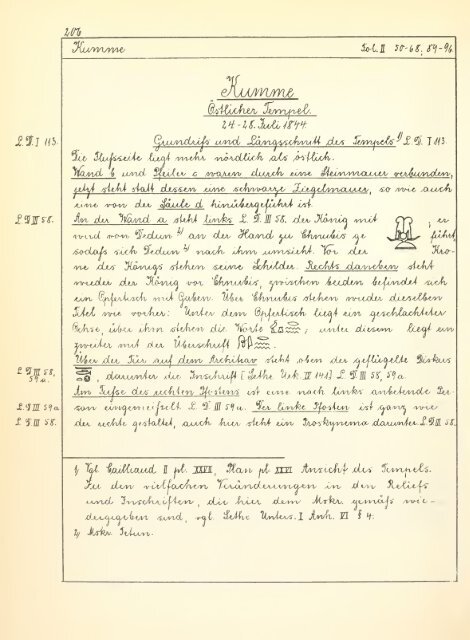 206
Kumme Fol. II 50-68, 89-96
Kumme
Östlicher Tempel.
24-28. Juli 1844
L. D. I 113. Grundriſs und Längsschnitt des Tempels 1) L. D. I 113
Die Fluſsseite liegt mehr nördlich als östlich.
Wand b und Pfeiler c waren durch eine Steinmauer verbunden,
jetzt steht statt dessen eine schwarze Ziegelmauer, so wie auch
eine von der Säule d hinübergeführt ist.
L. D. III 58. An der Wand a steht links L. D. III 58. der König mit ; er
wird von Dedun 2) an der Hand zu Chnubis geführt,
sodaſs sich Dedun 2) nach ihm umsieht. Vor der Kro-
ne des Königs stehen seine Schilder. Rechts daneben steht
wieder der König vor Chnubis, zwischen beiden befindet sich
ein Opfertisch mit Gaben. Über Chnubis stehen wieder dieselben
Titel wie vorher: Unter dem Opfertisch liegt ein geschlachteter
Ochse, über ihm stehen die Worte ; unter diesem liegt ein
zweiter mit der Überschrift .
Über der Tür auf dem Architrav steht oben der geflügelte Diskus
L. D. III 58, 59a. , darunter die Inschrift [Sethe Urk. IV 141] L. D. III 58, 59a
Am Fuſse des rechten Pfostens ist eine nach links anbetende Per-
L. D. III 59a son eingemeiſselt L. D. III 59a. Der linke Pfosten ist ganz wie
L. D. III 58. der rechte gestaltet, auch hier steht ein Proskynema darunter L. D. III 58.
1) Vgl. Cailliaud II pl. Plan pl. Ansicht des Tempels.
Zu den vielfachen Veränderungen in den Reliefs
und Inschriften, die hier dem Mskr. gemäſs wie-
dergegeben sind, vgl. Sethe Unters. I Anh. VI § 4.
2) Mskr. Tetun.